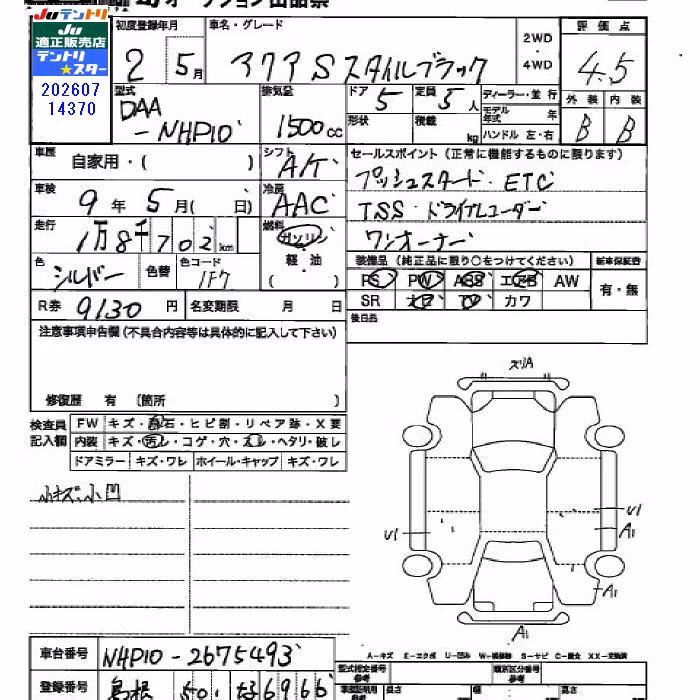 オークション出品票
Juテントリ
Ju
適正販売店
テントリ
★スター
202607
14370
初度登録年月
2 5月
車名・グレード
アクア Sスタイルブラック
2WD
・
4WD
評価点
4.5
型式
DAA
-NHP10
排気量
1500cc
ドア 5
定員 5人
形状
積載 kg
ディーラー・並行
モデル年式 年
ハンドル 左・右
外装 内装
B B
車歴 自家用・( )
シフト A/T
セールスポイント(正常に機能するものに限ります)
プッシュスタート・ETC
TSS・ドライブレコーダー
ワンオーナー
車検 9年 5月( 日)
冷房 AAC
走行 1万8千702km
燃料 ガソリン
軽・油
( )
色 シルバー
色替
色コード 1F7
装備品(純正品に限り○をつけてください)
新車保証書
PS PW ABS エアB AW
有・無
SR ナビ TV カワ
R券 9130円
名変期限 月 日
後日品
注意事項申告欄(不具合内容等は具体的に記入して下さい)
修復歴 有 (箇所 )
検査員記入欄
FW キズ・飛石・ヒビ割・リペア跡・X要
内装 キズ・汚レ・コゲ・穴・スレ・ヘタリ・破レ
ドアミラー キズ・ワレ ホイール・キャップ キズ・ワレ
小キズ、小凹
スリA
U1
U1
A1
A1
A1
A-キズ E-エクボ U-凹み W-補修跡 S-サビ C-腐食 XX-交換済
車台番号 NHP10-2675493
登録番号 島根 501
型式指定番号
参考
類別区分番号
参考
車検証明用
参考
長さ
幅
高さ